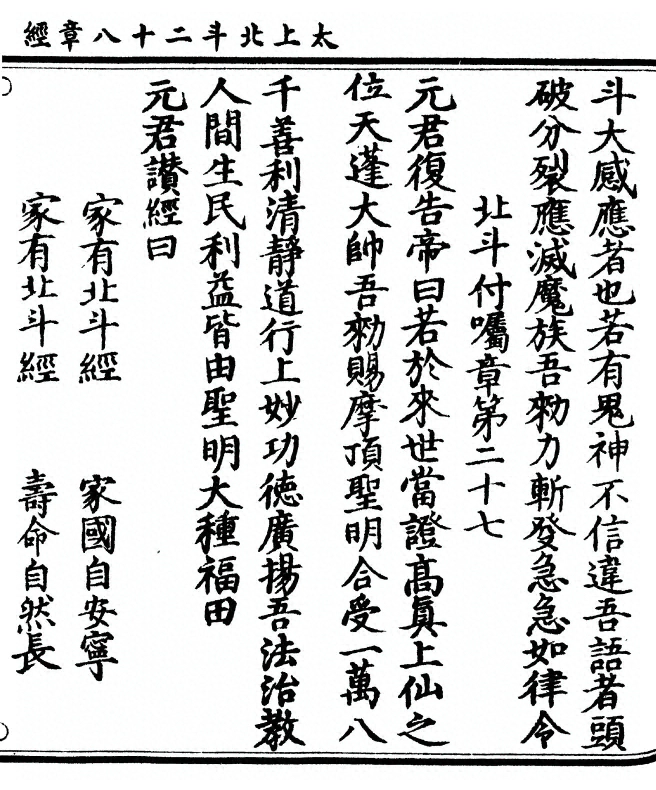 太上北斗二十八章經
斗大感應者也若有鬼神不信違吾語者頭
破分裂應滅魔族吾勑力斬發急急如律令
北斗付囑章第二十七
元君復告帝曰若於來世當證高眞上仙之
位天蓬大帥吾勑賜摩頂聖明合受一萬八
千善利清靜道行上妙功德廣揚吾法治教
人間生民利益皆由聖明大種福田
元君讃經曰
家有北斗經 家國自安寧
家有北斗經 壽命自然長